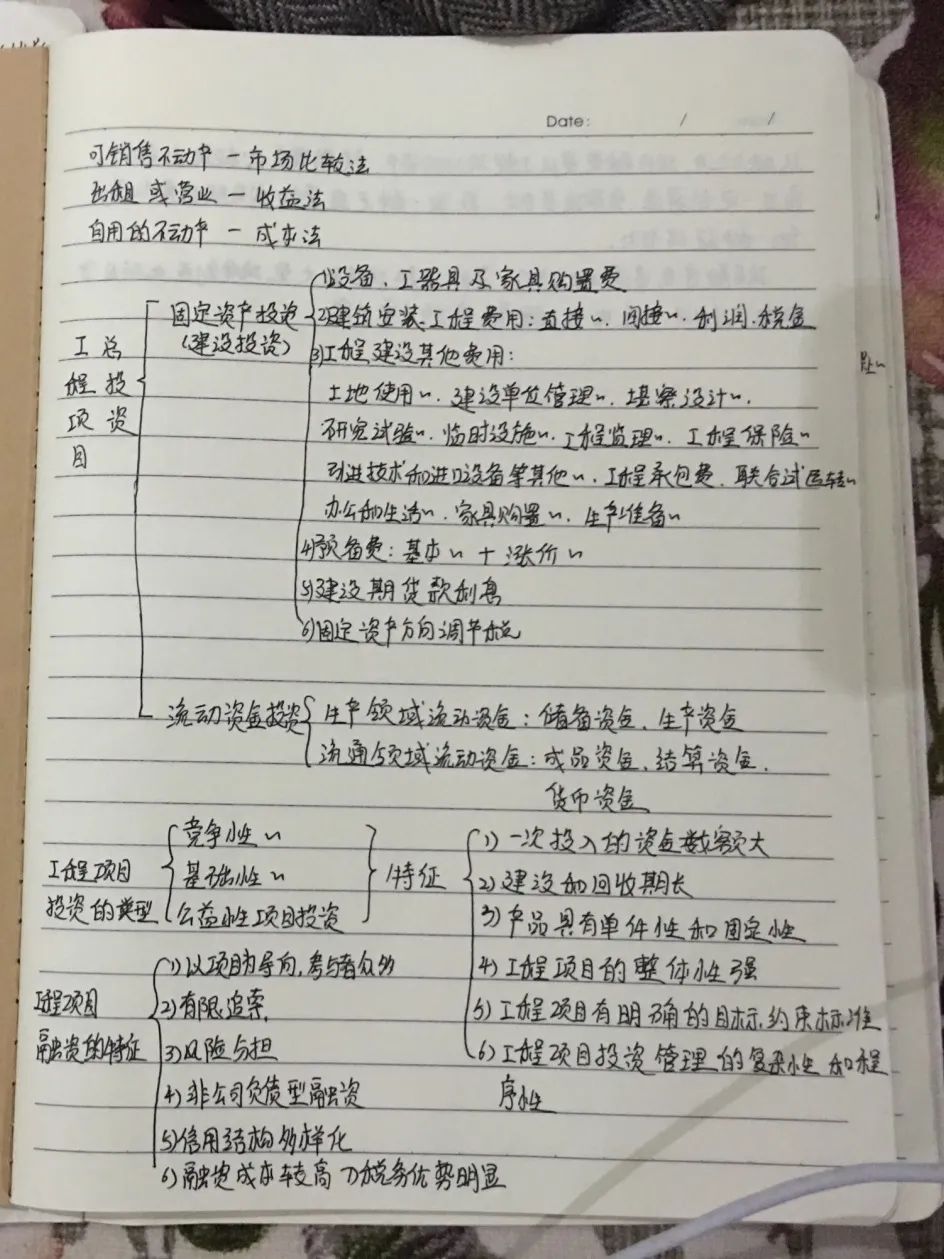 Date: / /
可销售不动产 — 市场比较法
出租或营业 — 收益法
自用的不动产 — 成本法
工程项目总投资
固定资产投资
(建设投资)
1)设备、工器具及家具购置费
2)建筑安装工程费用:直接〃、间接〃、利润、税金
3)工程建设其他费用:
土地使用〃、建设单位管理〃、堪察设计〃、
研究试验〃、临时设施〃、工程监理〃、工程保险〃
引进技术和进口设备等其他〃、工程承包费、联合试运转〃
办公和生活〃、家具购置〃、生产准备〃
4)预备费:基本〃 + 涨价〃
5)建设期贷款利息
6)固定资产方向调节税
流动资金投资
生产领域流动资金:储备资金、生产资金
流通领域流动资金:成品资金、结算资金、
货币资金
工程项目
投资的类型
竞争性〃
基础性〃
公益性项目投资
特征
1)一次投入的资金数额大
2)建设和回收期长
3)产品具有单件性和固定性
4)工程项目的整体性强
5)工程项目有明确的目标、约束标准
6)工程项目投资管理的复杂性和程
序性
工程项目
融资的特征
1)以项目为导向,参与者众多
2)有限追索
3)风险分担
4)非公司负债型融资
5)信用结构多样化
6)融资成本较高 7)税务优势明显